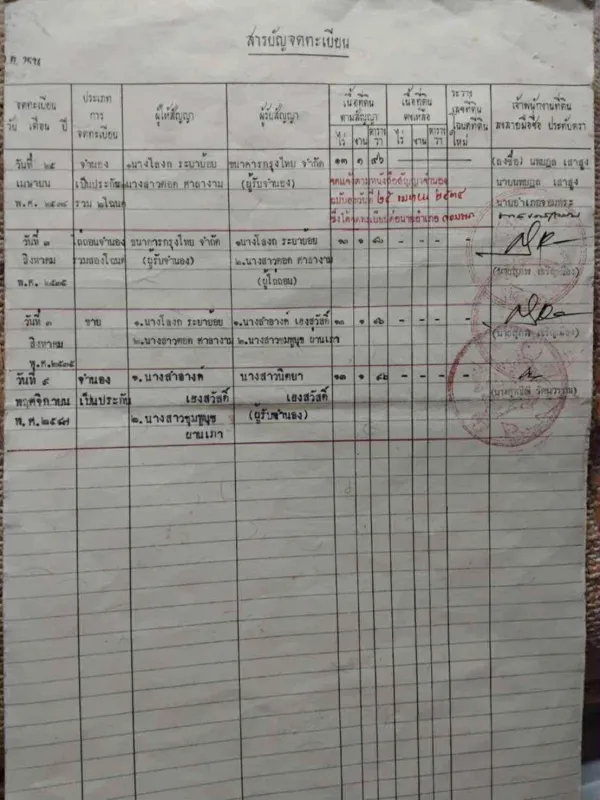 สารบัญจดทะเบียน
จดทะเบียน
วัน เดือน ปี
ประเภท
การ
จดทะเบียน
ผู้ให้สัญญา
ผู้รับสัญญา
เนื้อที่ดิน
ตามสัญญา
ไร่ งาน ตาราง
วา
เนื้อที่ดิน
คงเหลือ
ไร่ งาน ตาราง
วา
ระวาง
เลขที่ดิน
โฉนดที่ดิน
ใหม่
เจ้าพนักงานที่ดิน
ลงลายมือชื่อ ประทับตรา
วันที่ ๒๕
เมษายน
พ.ศ. ๒๕๓๔
จำนอง
เป็นประกัน
รวม ๒ โฉนด
๑นางโลงก ระยาย้อย
นางสาวคอต ศาลางาม
ธนาคารกรุงไทย จำกัด
(ผู้รับจำนอง)
๑๓ ๑ ๔๖
จดแจ้งตามหนังสือสัญญาจำนอง
ฉบับลงวันที่ ๒๕ เมษายน ๒๕๓๔
ซึ่งได้จดทะเบียนต่อนายอำเภอ จอมพระ
(ลงชื่อ) นพดล เลาสูง
นายนพดล เลาสูง
นายอำเภอจอมพระ
วันที่ ๓
สิงหาคม
พ.ศ. ๒๕๓๕
ไถ่ถอนจำนอง
รวมสองโฉนด
ธนาคารกรุงไทย จำกัด
(ผู้รับจำนอง)
๑นางโลงก ระยาย้อย
๒.นางสาวคอต ศาลางาม
(ผู้ไถ่ถอน)
๑๓ ๑ ๔๖ - - - -
วันที่ ๓
สิงหาคม
พ.ศ.๒๕๓๕
ขาย
๑.นางโลงก ระยาย้อย
๒.นางสาวคอต ศาลางาม
๑.นางสำอางค์ เฮงสวัสดิ์
๒.นางสาวชมพูนุช ผานเภา
๑๓ ๑ ๔๖ - - - -
วันที่ ๙
พฤศจิกายน
พ.ศ.๒๕๔๗
จำนอง
เป็นประกัน
๑.นางสำอางค์
เฮงสวัสดิ์
๒.นางสาวชมพูนุช
ผานเภา
นางสาวนิตยา
เฮงสวัสดิ์
(ผู้รับจำนอง)
๑๓ ๑ ๔๖ - - - -